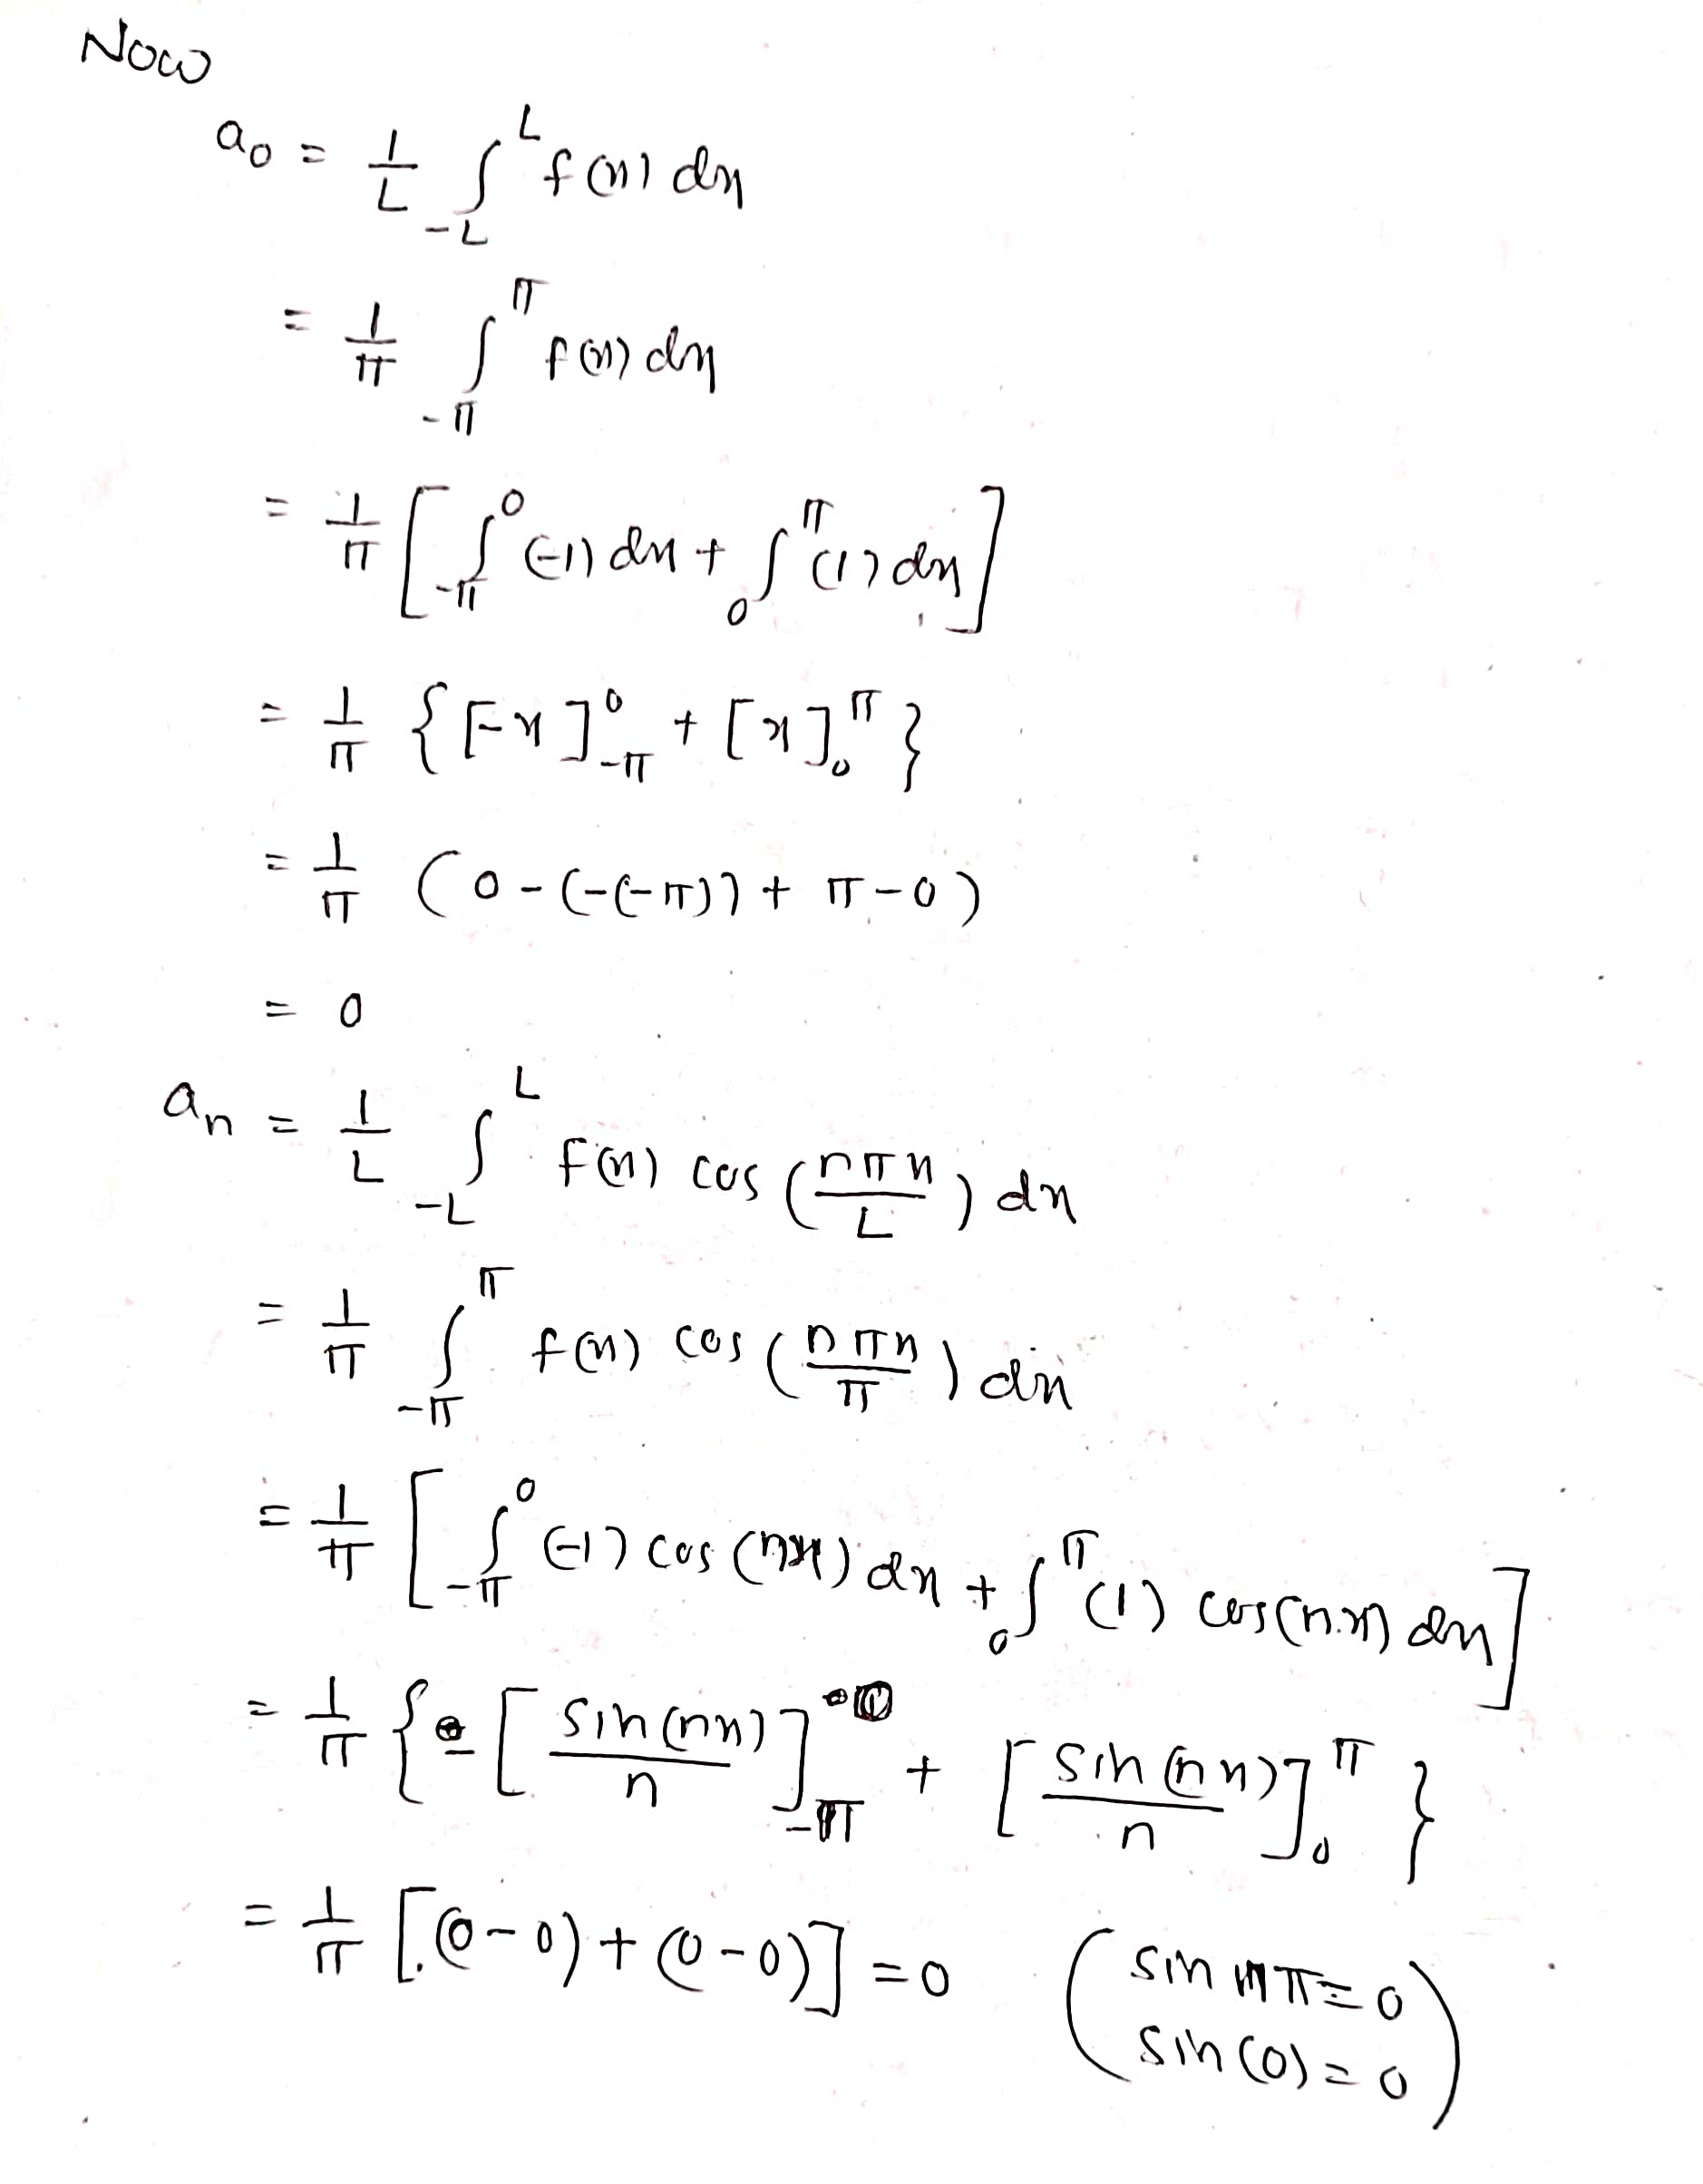 Now
a₀ = 1/L ∫_{-L}^{L} f(x) dx
= 1/π ∫_{-π}^{π} f(x) dx
= 1/π [ ∫_{-π}^{0} (-1) dx + ∫_{0}^{π} (1) dx ]
= 1/π { [-x]_{-π}^{0} + [x]_{0}^{π} }
= 1/π (0-(-(-π)) + π-0)
= 0
aₙ = 1/L ∫_{-L}^{L} f(x) cos (nπx/L) dx
= 1/π ∫_{-π}^{π} f(x) cos (nπx/π) dx
= 1/π [ ∫_{-π}^{0} (-1) cos (nx) dx + ∫_{0}^{π} (1) cos(n.x) dx ]
= 1/π { - [ sin(nx)/n ]_{-π}^{0} + [ sin(nx)/n ]_{0}^{π} }
= 1/π [(0-0) + (0-0)] = 0 ( sin nπ = 0
sin(0) = 0 )